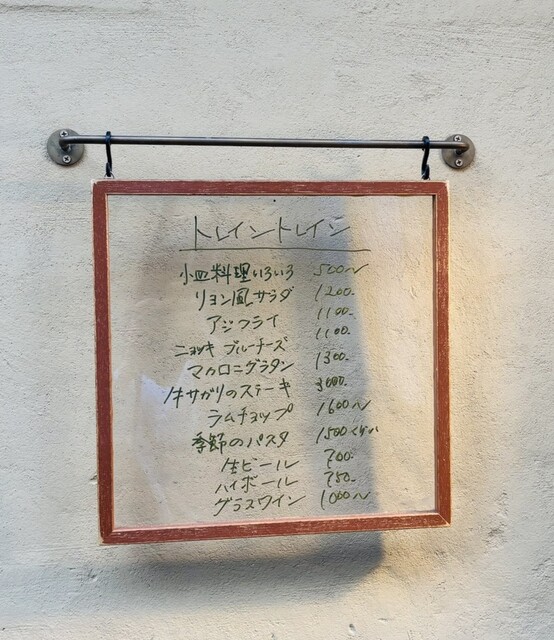 トレイントレイン
小皿料理いろいろ 500〜
リヨン風サラダ 1200-
アジフライ 1100-
ニョッキ ブルーチーズ 1100-
マカロニグラタン 1300-
牛サガリのステーキ 3000-
ラムチョップ 1600〜
季節のパスタ 1500
生ビール 700-
ハイボール 750-
グラスワイン 1000〜